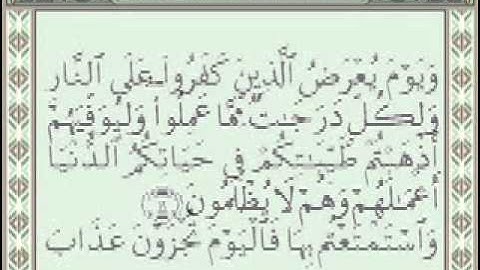 وَيَوْمَ يُعْرَضُ ٱلَّذِينَ كَفَرُوا۟ عَلَى ٱلنَّارِ
وَلِكُلٍّ دَرَجَٰتٌ مِّمَّا عَمِلُوا۟ وَلِيُوَفِّيَهُمْ
أَذْهَبْتُمْ طَيِّبَٰتِكُمْ فِى حَيَاتِكُمُ ٱلدُّنْيَا
أَعْمَٰلَهُمْ وَهُمْ لَا يُظْلَمُونَ
وَٱسْتَمْتَعْتُم بِهَا فَٱلْيَوْمَ تُجْزَوْنَ عَذَابَ